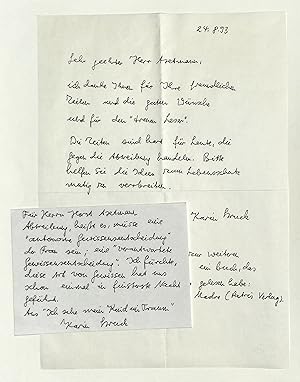 24.8.93
Sehr geehrter Herr Asetmann,
ich danke Ihnen für Ihre freundlichen
Zeilen und die guten Wünsche
und für den "treuen Leser".
Die Zeiten sind hart für Leute, die
gegen die Abtreibung handeln. Bitte
helfen Sie die Ideen zum Lebensschutz
mutig zu verbreiten.
Karin Struck
weitere
ein Buch, das
gelesen habe:
Madre (Astrès Verlag).
Für Herrn Horst Asetmann
Abtreibung, heißt es, müsse eine
"autonome Gewissensentscheidung"
der Frau sein, eine "verantwortete
Gewissensentscheidung". Ich fürchte,
diese Art von Gewissen hat uns
schon einmal in finsterste Nacht
geführt.
Aus "Ich sehe mein Kind im Traum"
Karin Struck